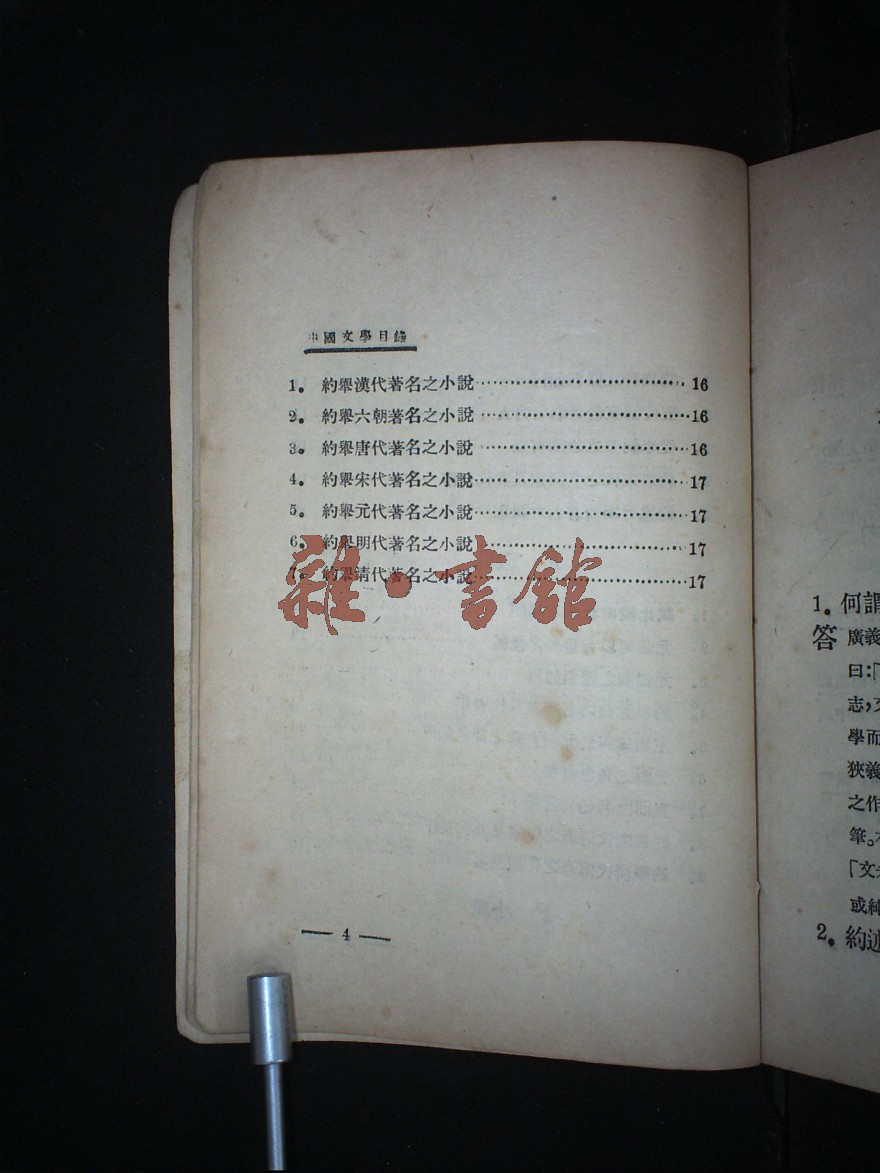 中國文學目錄
1. 約舉漢代著名之小說 16
2. 約舉六朝著名之小說 16
3. 約舉唐代著名之小說 16
4. 約舉宋代著名之小說 17
5. 約舉元代著名之小說 17
6. 約舉明代著名之小說 17
7. 約舉清代著名之小說 17
雜·書館
— 4 —
1. 何謂
答 廣義
曰:「
志,文
學而
狹義
之作
筆。
「文
或純
2. 約述